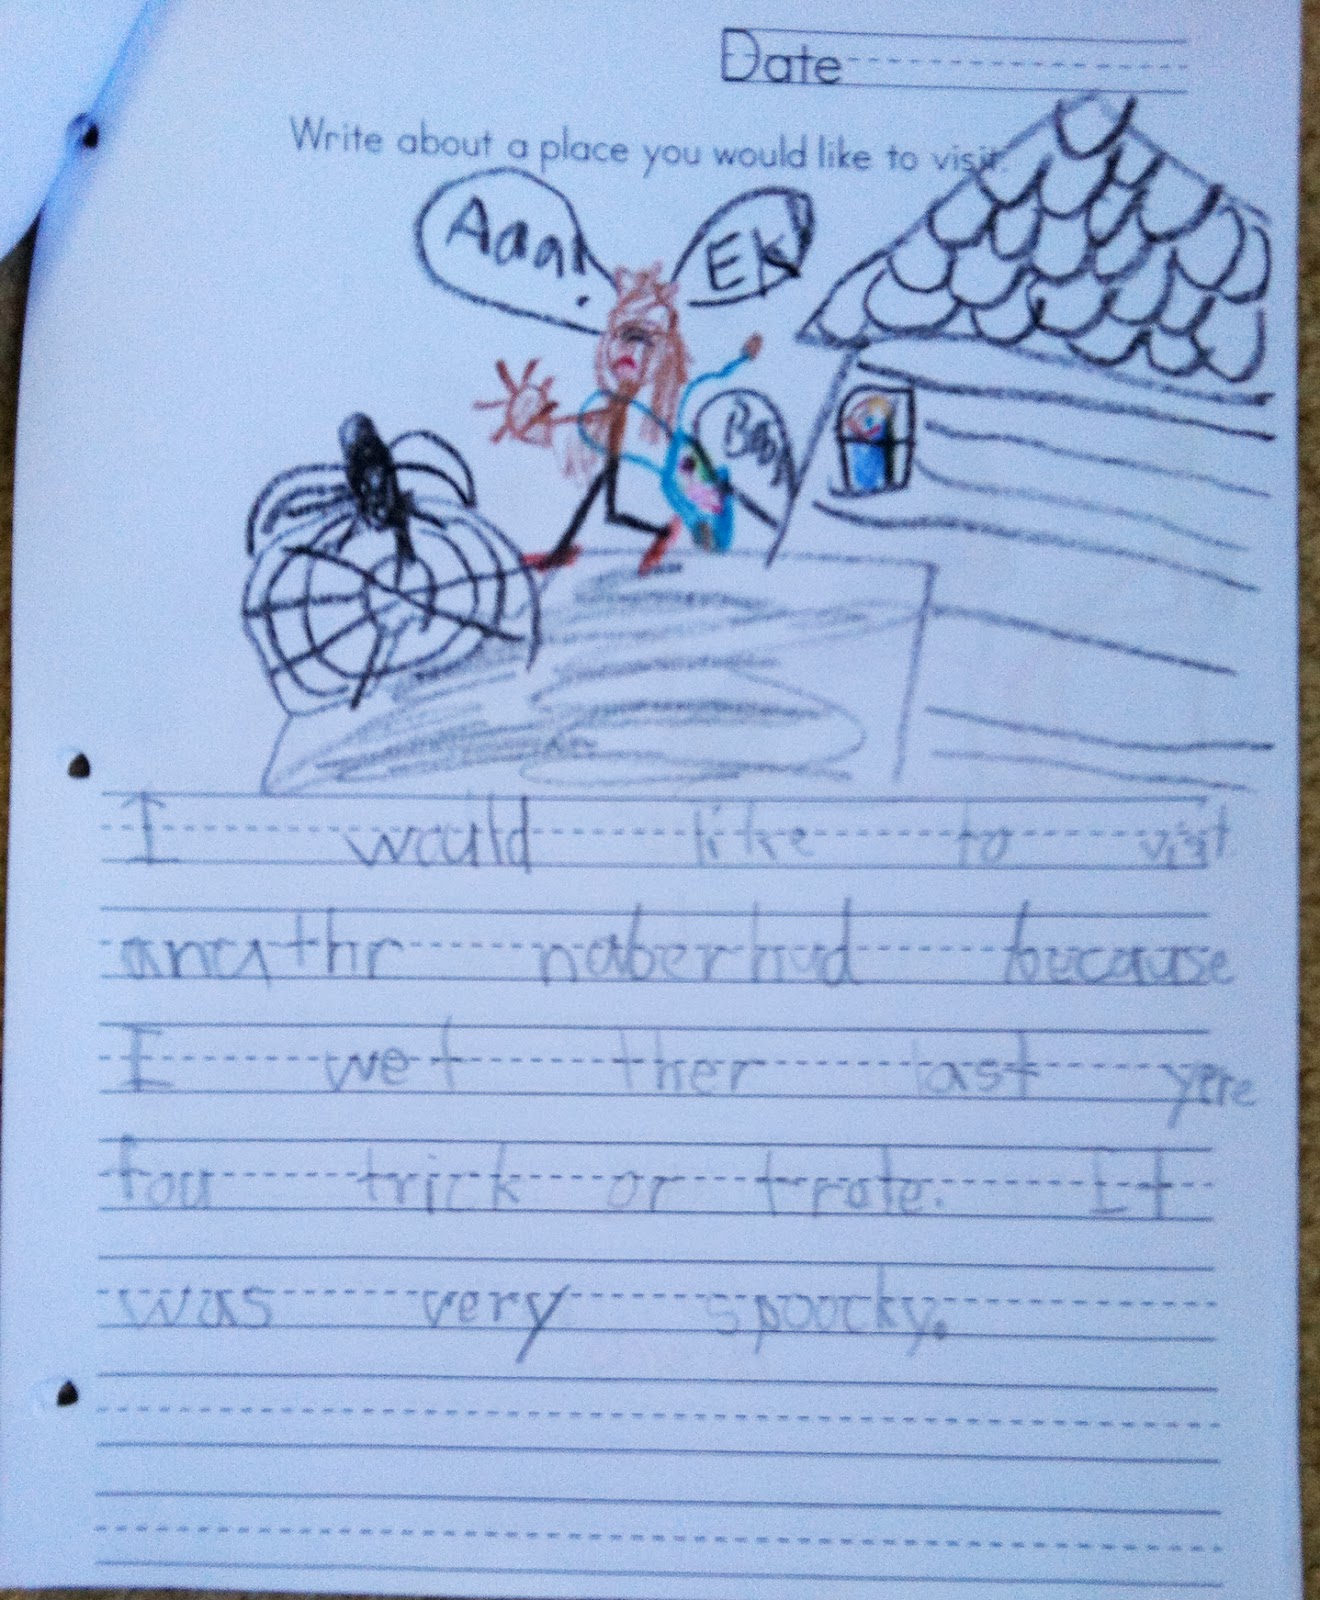 Date
Write about a place you would like to visit.
Aaa!
EK
Boo
I would like to visit
anuthr naberhud because
I wet ther last yere
fou trick or trate. It
was very spoocky.